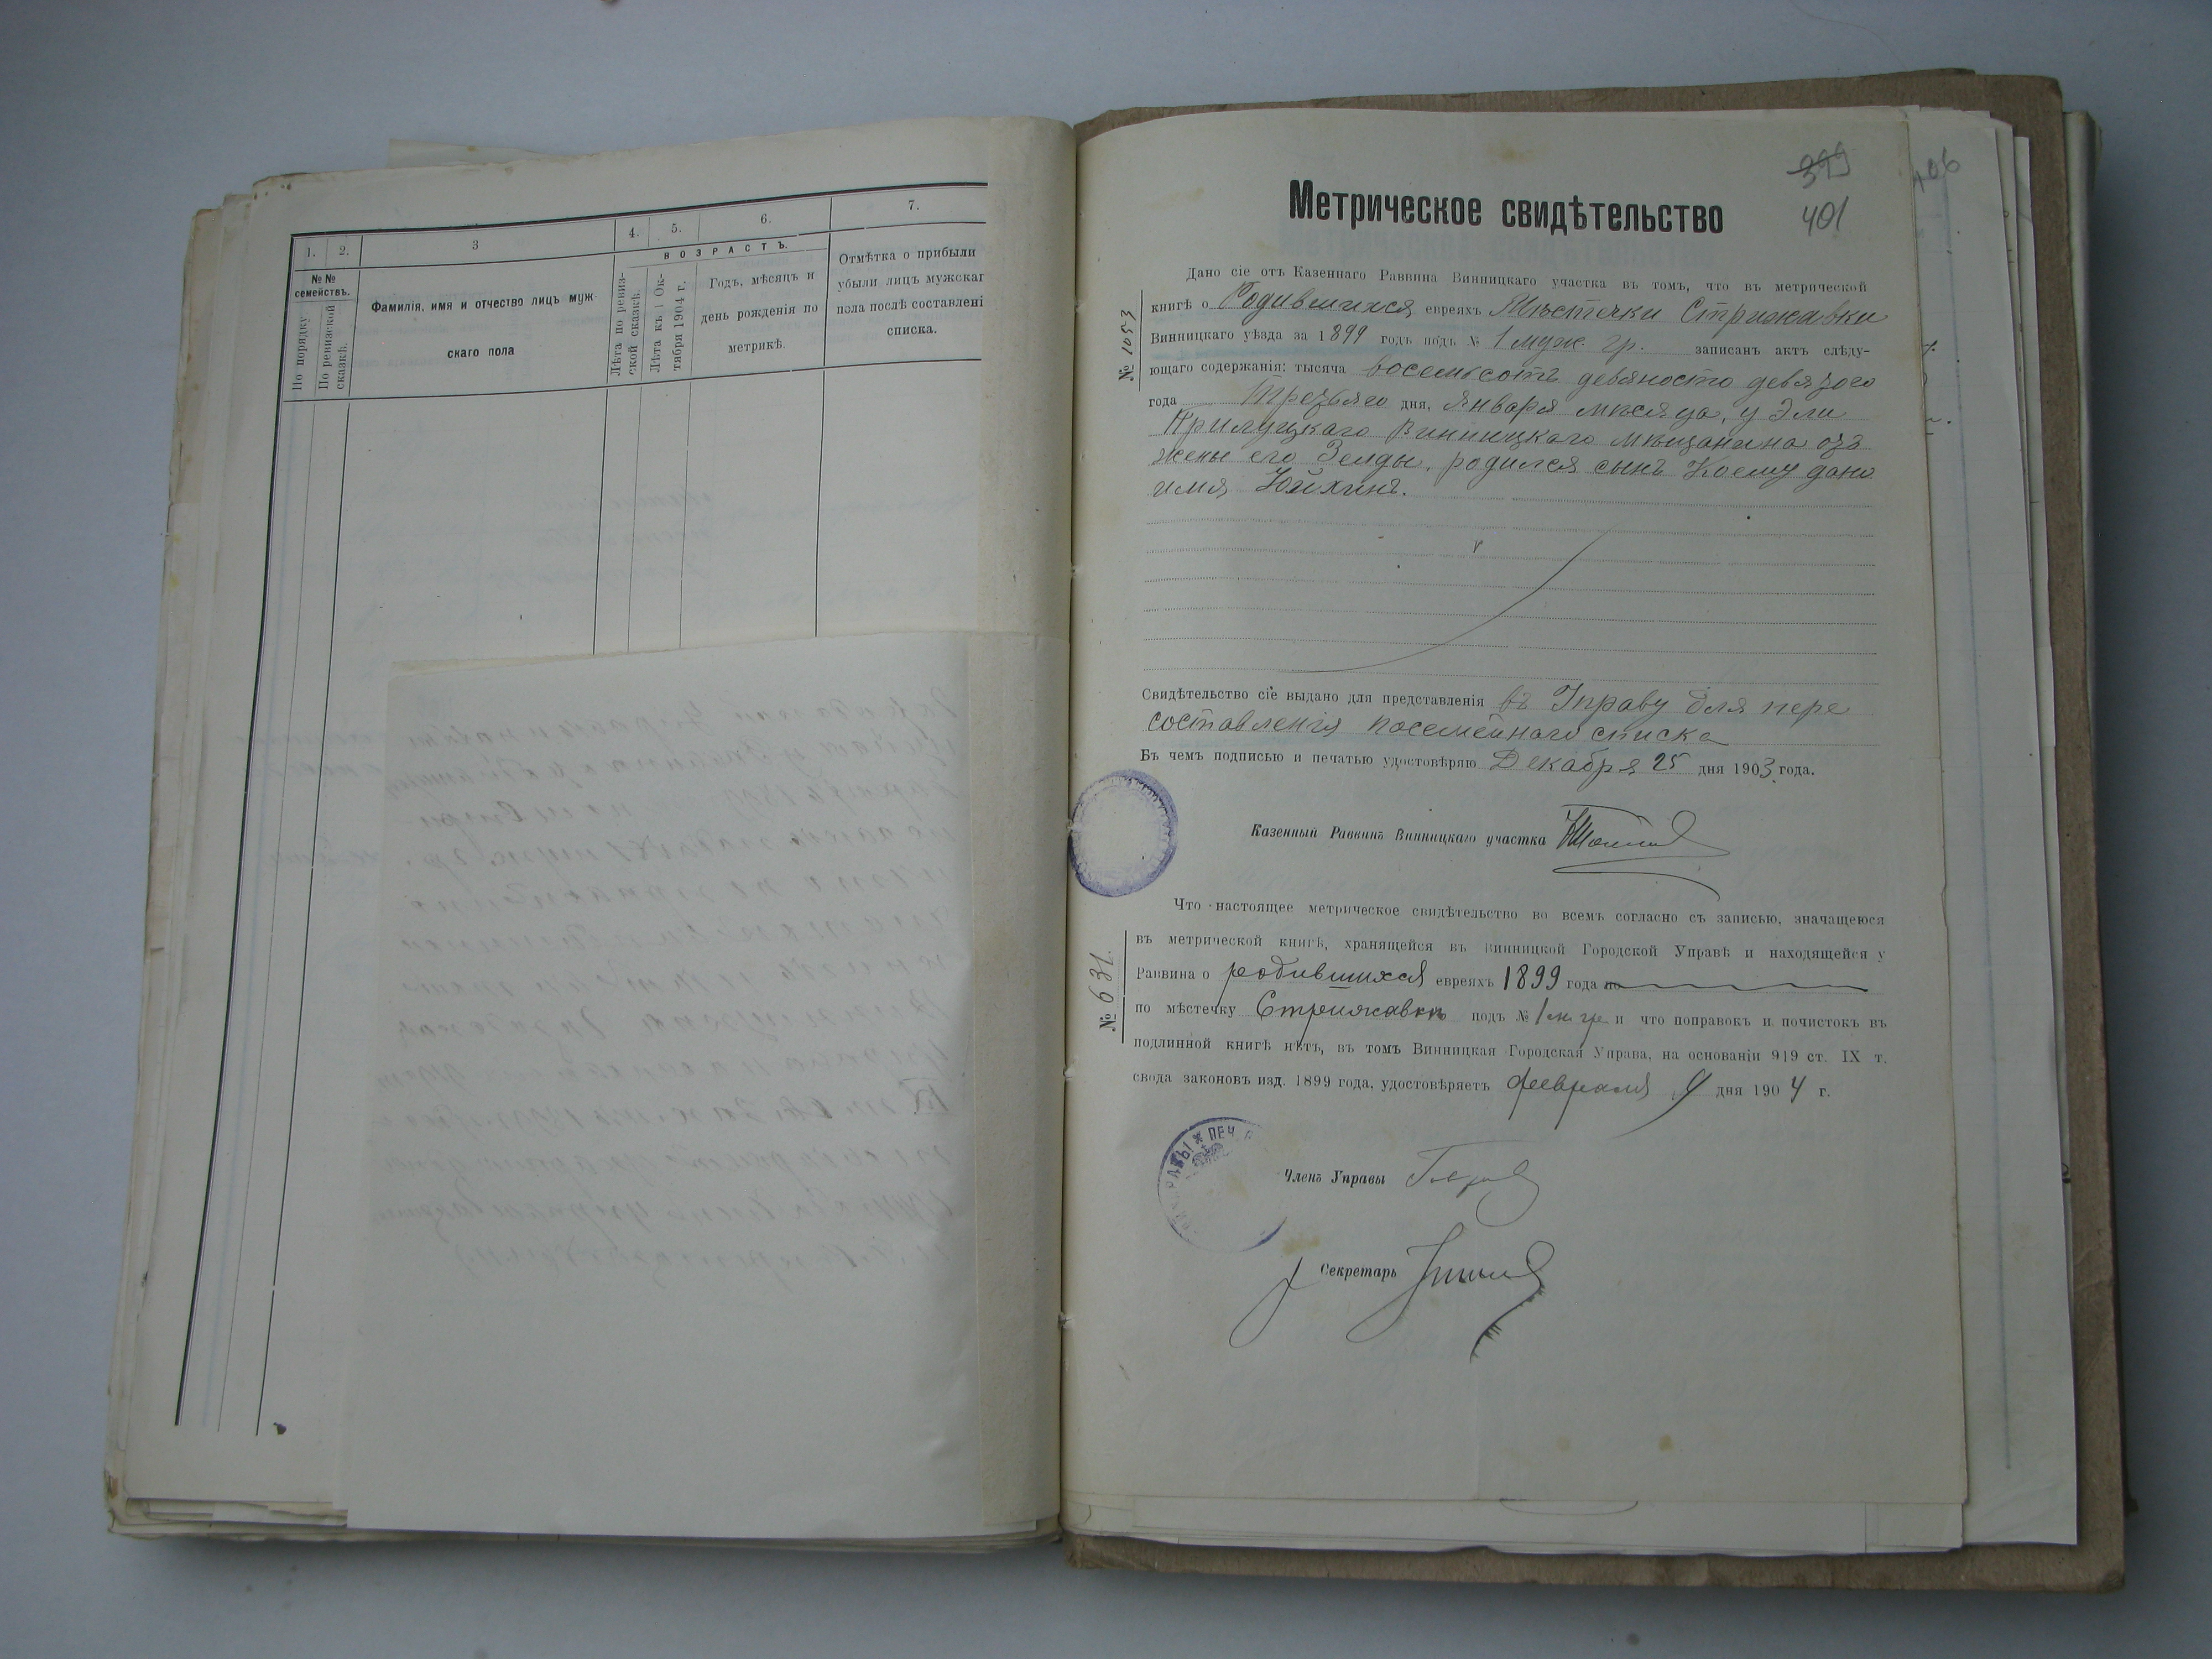 1.
2.
3
4.
5.
6.
7.
№ №
семействъ.
По порядку
По ревизской
сказкѣ.
Фамилія, имя и отчество лицъ муж-
скаго пола
В О З Р А С Т Ъ.
Лѣта по ревиз-
ской сказкѣ.
Лѣта къ 1 Ок-
тября 1904 г.
Годъ, мѣсяцъ и
день рожденія по
метрикѣ.
Отмѣтка о прибыли
убыли лицъ мужскаг
пола послѣ составлені
списка.
399
401
406
Метрическое свидѣтельство
№ 1053
Дано сіе отъ Казеннаго Раввина Винницкаго участка въ томъ, что въ метрической
книгѣ о Родившихся евреяхъ Мѣстечки Стрижавки
Винницкаго уѣзда за 1899 годъ подъ № 1 муж. гр. записанъ актъ слѣду-
ющаго содержанія: тысяча восемьсотъ девяносто девятого
года Третьяго дня, Января мѣсяца, у Эли
Прилуцкаго Винницкаго мѣщанина отъ
жены его Зелды, родился сынъ Коему дано
имя Хаихинъ.
Свидѣтельство сіе выдано для представленія въ Управу для пере
составленія посемейнаго списка
Въ чемъ подписью и печатью удостовѣряю Декабря 25 дня 1903 года.
Казенный Раввинъ Винницкаго участка
№ 631.
Что настоящее метрическое свидѣтельство во всемъ согласно съ записью, значащеюся
въ метрической книгѣ, хранящейся въ Винницкой Городской Управѣ и находящейся у
Раввина о родившихся евреяхъ 1899 года по
по мѣстечку Стрижавкѣ подъ № 1 м. гр. и что поправокъ и почистокъ въ
подлинной книгѣ нѣтъ, въ томъ Винницкая Городская Управа, на основаніи 919 ст. IX т.
свода законовъ изд. 1899 года, удостовѣряетъ февраля 9 дня 1904 г.
ПЕЧ
Членъ Управы
Секретарь